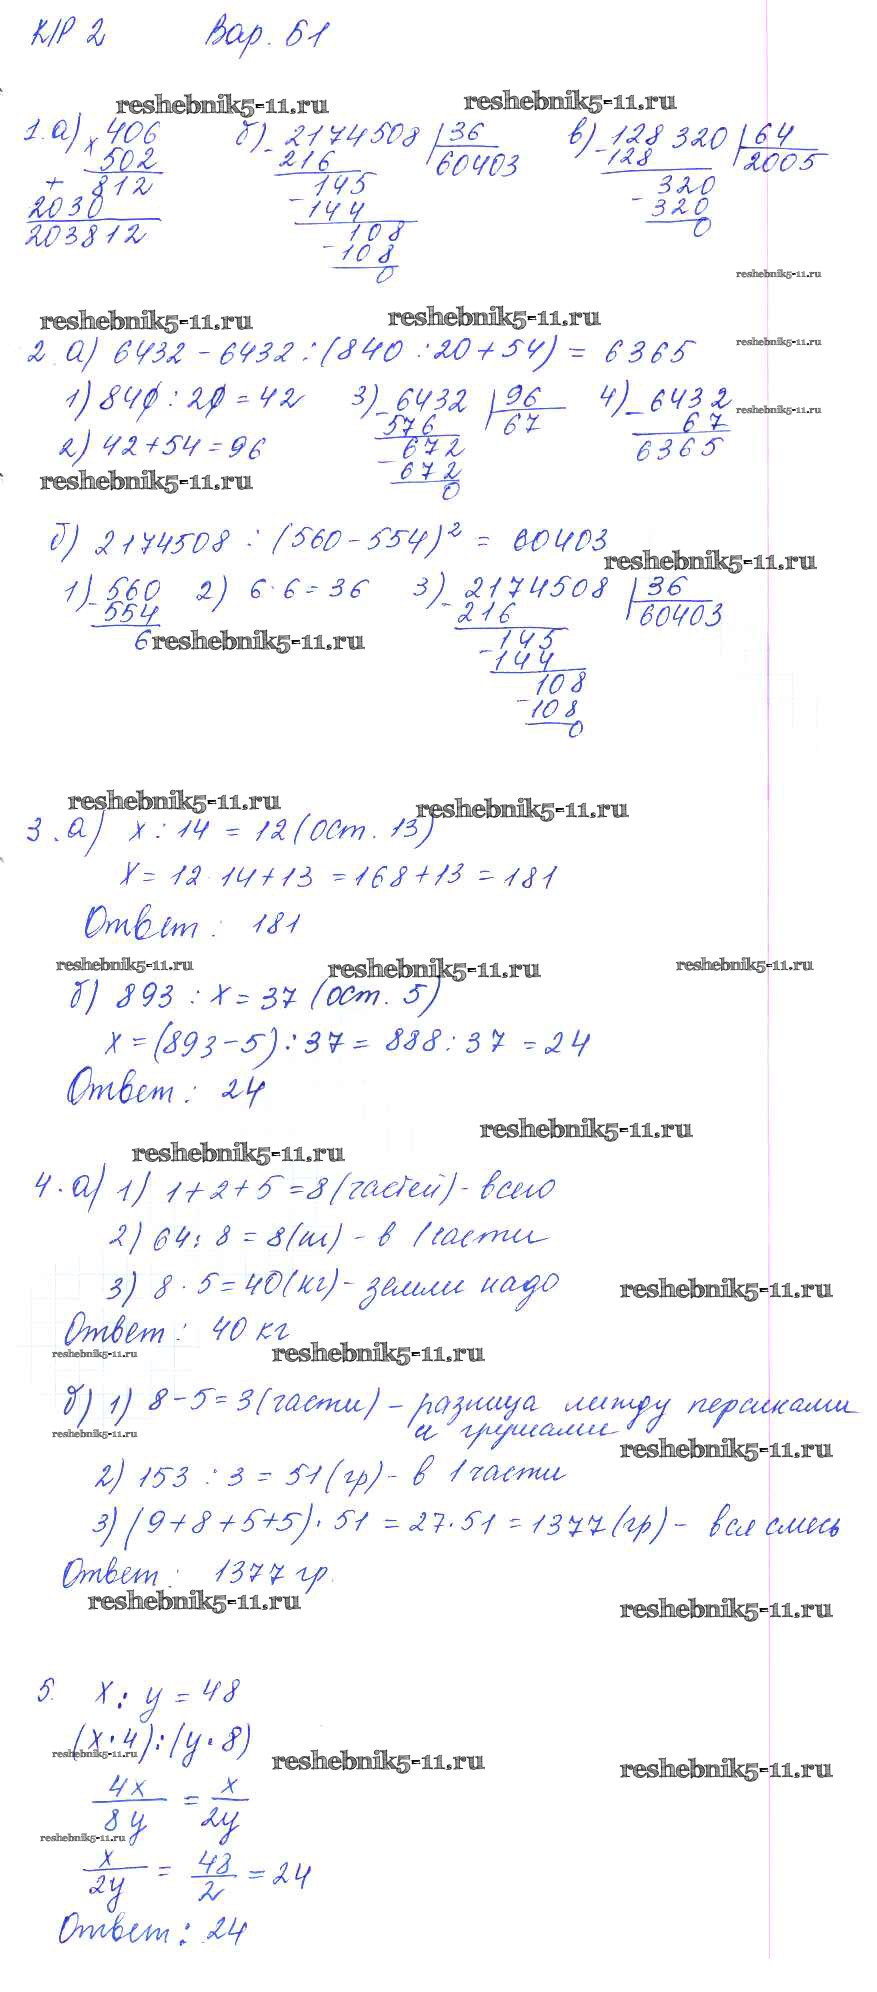 К/Р 2 Вар. Б1
reshebnik5-11.ru reshebnik5-11.ru
1. а) × 406 б) - 2174508 | 36 в) - 128 320 | 64
502 216 60403 128 2005
+ 812 145 320
2030 - 144 - 320
203812 108 0
- 108
0
reshebnik5-11.ru
reshebnik5-11.ru reshebnik5-11.ru
reshebnik5-11.ru
2. а) 6432 - 6432 : (840 : 20 + 54) = 6365
1) 840 : 20 = 42 3) - 6432 | 96 4) - 6432
reshebnik5-11.ru
576 67 67
2) 42 + 54 = 96 672 6365
- 672
0
reshebnik5-11.ru
б) 2174508 : (560 - 554)² = 60403
reshebnik5-11.ru
1) - 560 2) 6 · 6 = 36 3) - 2174508 | 36
554 216 60403
6 145
reshebnik5-11.ru
- 144
108
- 108
0
reshebnik5-11.ru reshebnik5-11.ru
3. а) x : 14 = 12 (ост. 13)
x = 12 · 14 + 13 = 168 + 13 = 181
Ответ: 181
reshebnik5-11.ru reshebnik5-11.ru reshebnik5-11.ru
б) 893 : x = 37 (ост. 5)
x = (893 - 5) : 37 = 888 : 37 = 24
Ответ: 24
reshebnik5-11.ru
reshebnik5-11.ru
4. а) 1) 1 + 2 + 5 = 8 (частей) - всего
2) 64 : 8 = 8 (ш) - в 1 части
3) 8 · 5 = 40 (кг) - земли надо
reshebnik5-11.ru
Ответ: 40 кг
reshebnik5-11.ru reshebnik5-11.ru
б) 1) 8 - 5 = 3 (части) - разница между персиками
и грушами
reshebnik5-11.ru reshebnik5-11.ru
2) 153 : 3 = 51 (гр) - в 1 части
3) (9 + 8 + 5 + 5) · 51 = 27 · 51 = 1377 (гр) - вся смесь
Ответ: 1377 гр.
reshebnik5-11.ru reshebnik5-11.ru
5. x : y = 48
(x · 4) : (y · 8)
reshebnik5-11.ru reshebnik5-11.ru reshebnik5-11.ru
4x/8y = x/2y
reshebnik5-11.ru
x/2y = 48/2 = 24
Ответ: 24